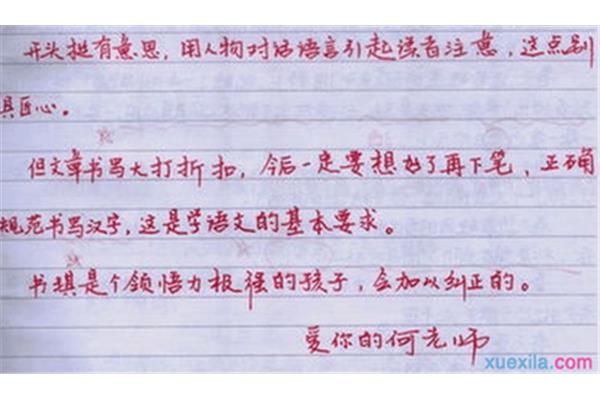 开头挺有意思，用人物对话语言引起读者注意，这点别
具匠心。
但文章书写大打折扣，今后一定要想好了再下笔，正确
规范书写汉字，这是学语文的基本要求。
书琪是个领悟力极强的孩子，会加以纠正的。
爱你的何老师
xuexila.com